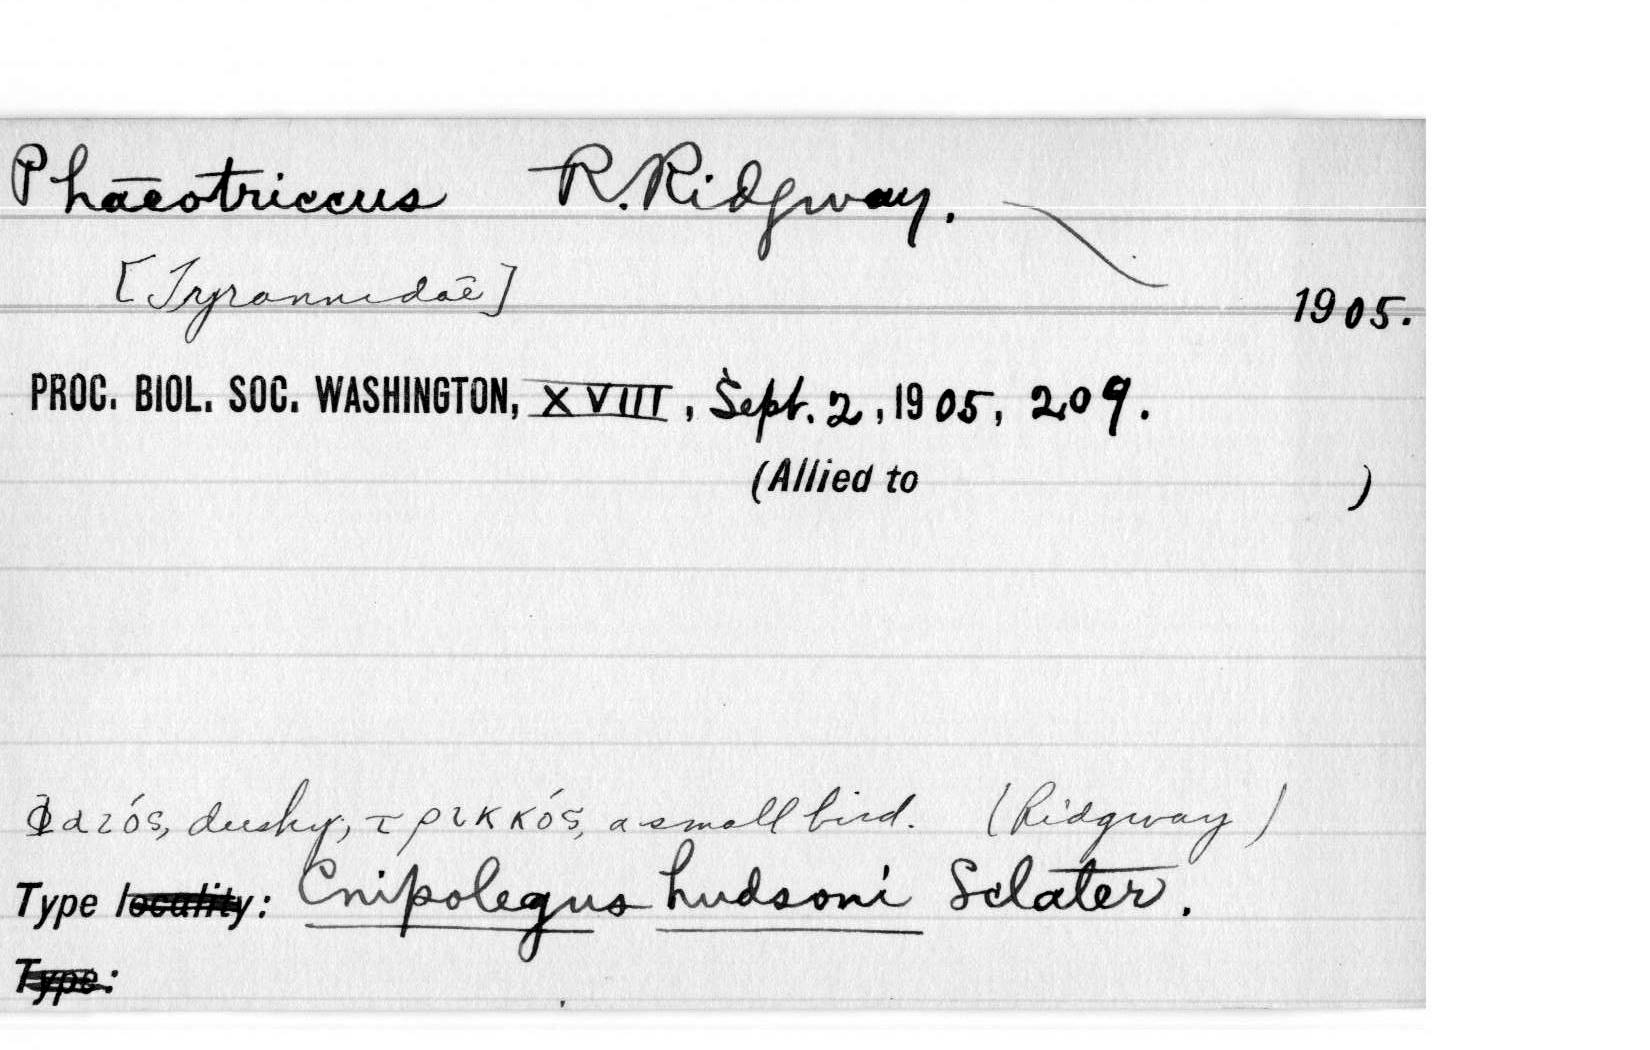 Phaeotriccus R. Ridgway.
[Tyrannidae]
1905.
PROC. BIOL. SOC. WASHINGTON, XVIII, Sept. 2, 1905, 209.
(Allied to )
Φαιός, dusky; τρικκός, a small bird. (Ridgway)
Type locality: Cnipolegus hudsoni Sclater.
Type: